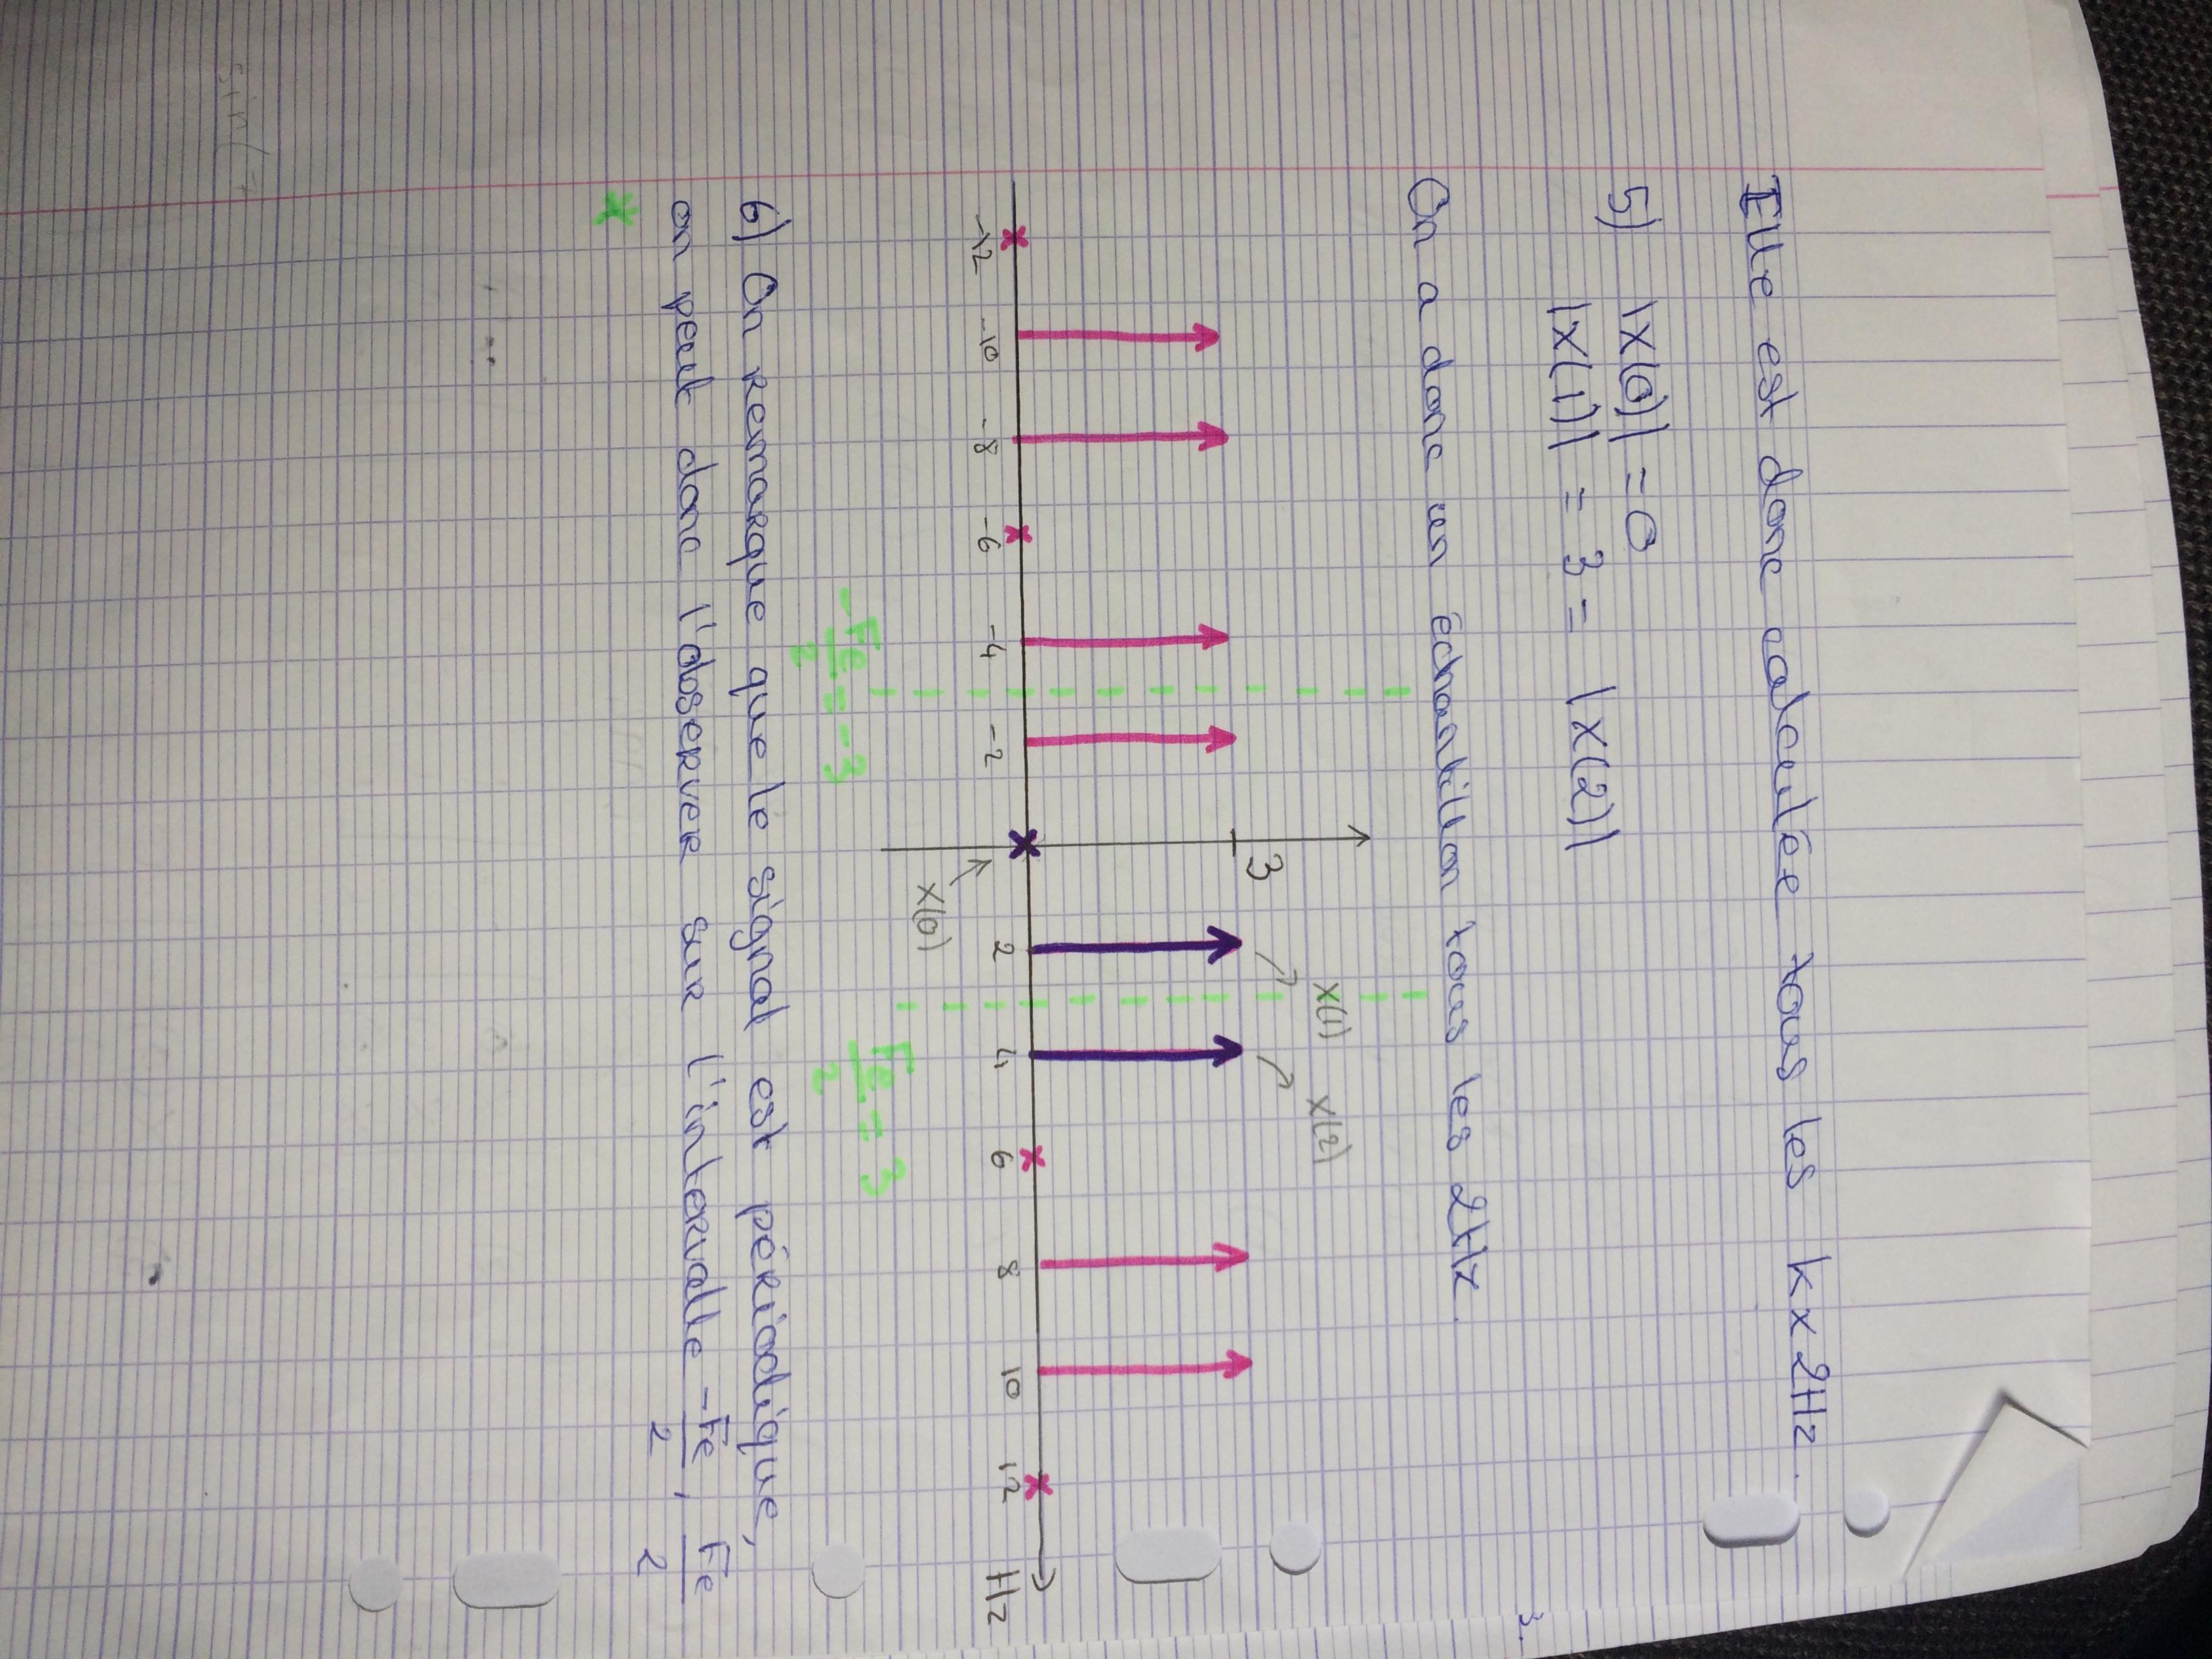 Elle est donc calculée tous les k x 2Hz.
5) |X(0)| = 0
|X(1)| = 3 = |X(2)|
3.
On a donc un échantillon tous les 2Hz.
X(1) X(2)
3
-12 -10 -8 -6 -4 -2 2 4 6 8 10 12 Hz
X(0)
-Fe/2 = -3 Fe/2 = 3
6) On remarque que le signal est périodique,
on peut donc l'observer sur l'intervalle -Fe/2, Fe/2
*
sin(7